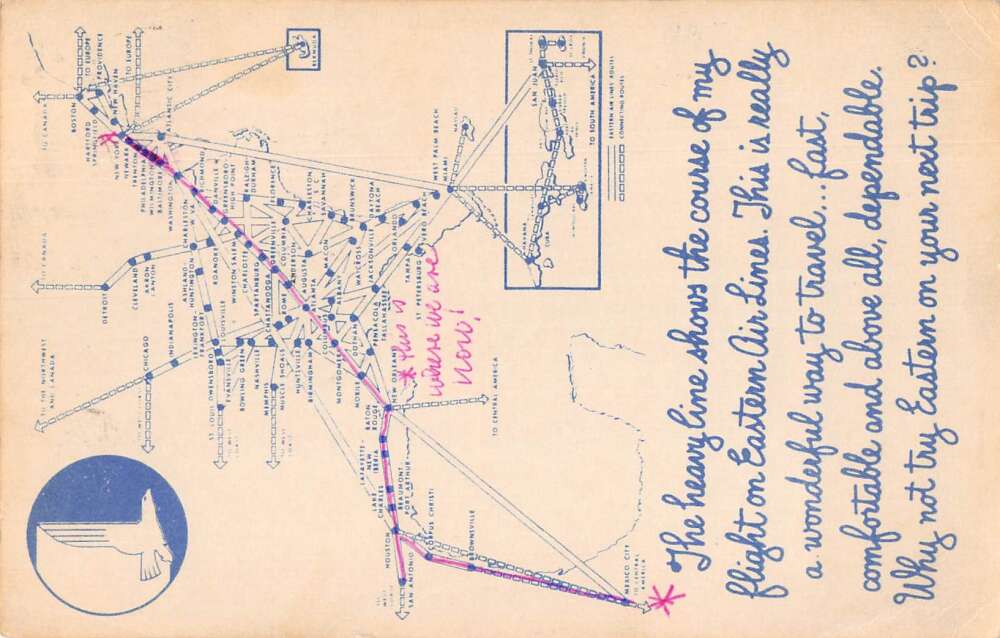 The heavy line shows the course of my
flight on Eastern Air Lines. This is really
a wonderful way to travel...fast,
comfortable and above all, dependable.
Why not try Eastern on your next trip?
* this is
where we are
now!
TO CANADA
BOSTON
TO EUROPE
PROVIDENCE
HARTFORD
SPRINGFIELD
NEW HAVEN
TO EUROPE
NEW YORK
NEWARK
TRENTON
PHILADELPHIA
WILMINGTON
BALTIMORE
ATLANTIC CITY
WASHINGTON
RICHMOND
BERMUDA
CHARLESTON
W. VA.
DANVILLE
GREENSBORO
HIGH POINT
RALEIGH
DURHAM
FLORENCE
CHARLESTON
S.C.
SAVANNAH
BRUNSWICK
DAYTONA
BEACH
ORLANDO
VERO
BEACH
WEST PALM BEACH
MIAMI
NASSAU
TO CANADA
DETROIT
CLEVELAND
AKRON
CANTON
ASHLAND
HUNTINGTON
ROANOKE
WINSTON SALEM
CHARLOTTE
SPARTANBURG
GREENVILLE
COLUMBIA
ANDERSON
AUGUSTA
MACON
WAYCROSS
JACKSONVILLE
TAMPA
ST. PETERSBURG
INDIANAPOLIS
LEXINGTON
FRANKFORT
LOUISVILLE
CHATTANOOGA
ROME
ATLANTA
ALBANY
TALLAHASSEE
TO THE NORTHWEST
AND CANADA
CHICAGO
ST. LOUIS
OWENSBORO
EVANSVILLE
BOWLING GREEN
NASHVILLE
MEMPHIS
MUSCLE SHOALS
HUNTSVILLE
BIRMINGHAM
COLUMBUS
MONTGOMERY
DOTHAN
PENSACOLA
MOBILE
NEW ORLEANS
BATON
ROUGE
LAFAYETTE-
NEW
IBERIA
LAKE
CHARLES
BEAUMONT
PORT ARTHUR
HOUSTON
SAN ANTONIO
CORPUS CHRISTI
BROWNSVILLE
MEXICO CITY
TO CENTRAL
AMERICA
TO CENTRAL AMERICA
HAVANA
CUBA
SAN JUAN
TO SOUTH AMERICA
EASTERN AIR LINES ROUTES
CONNECTING ROUTES